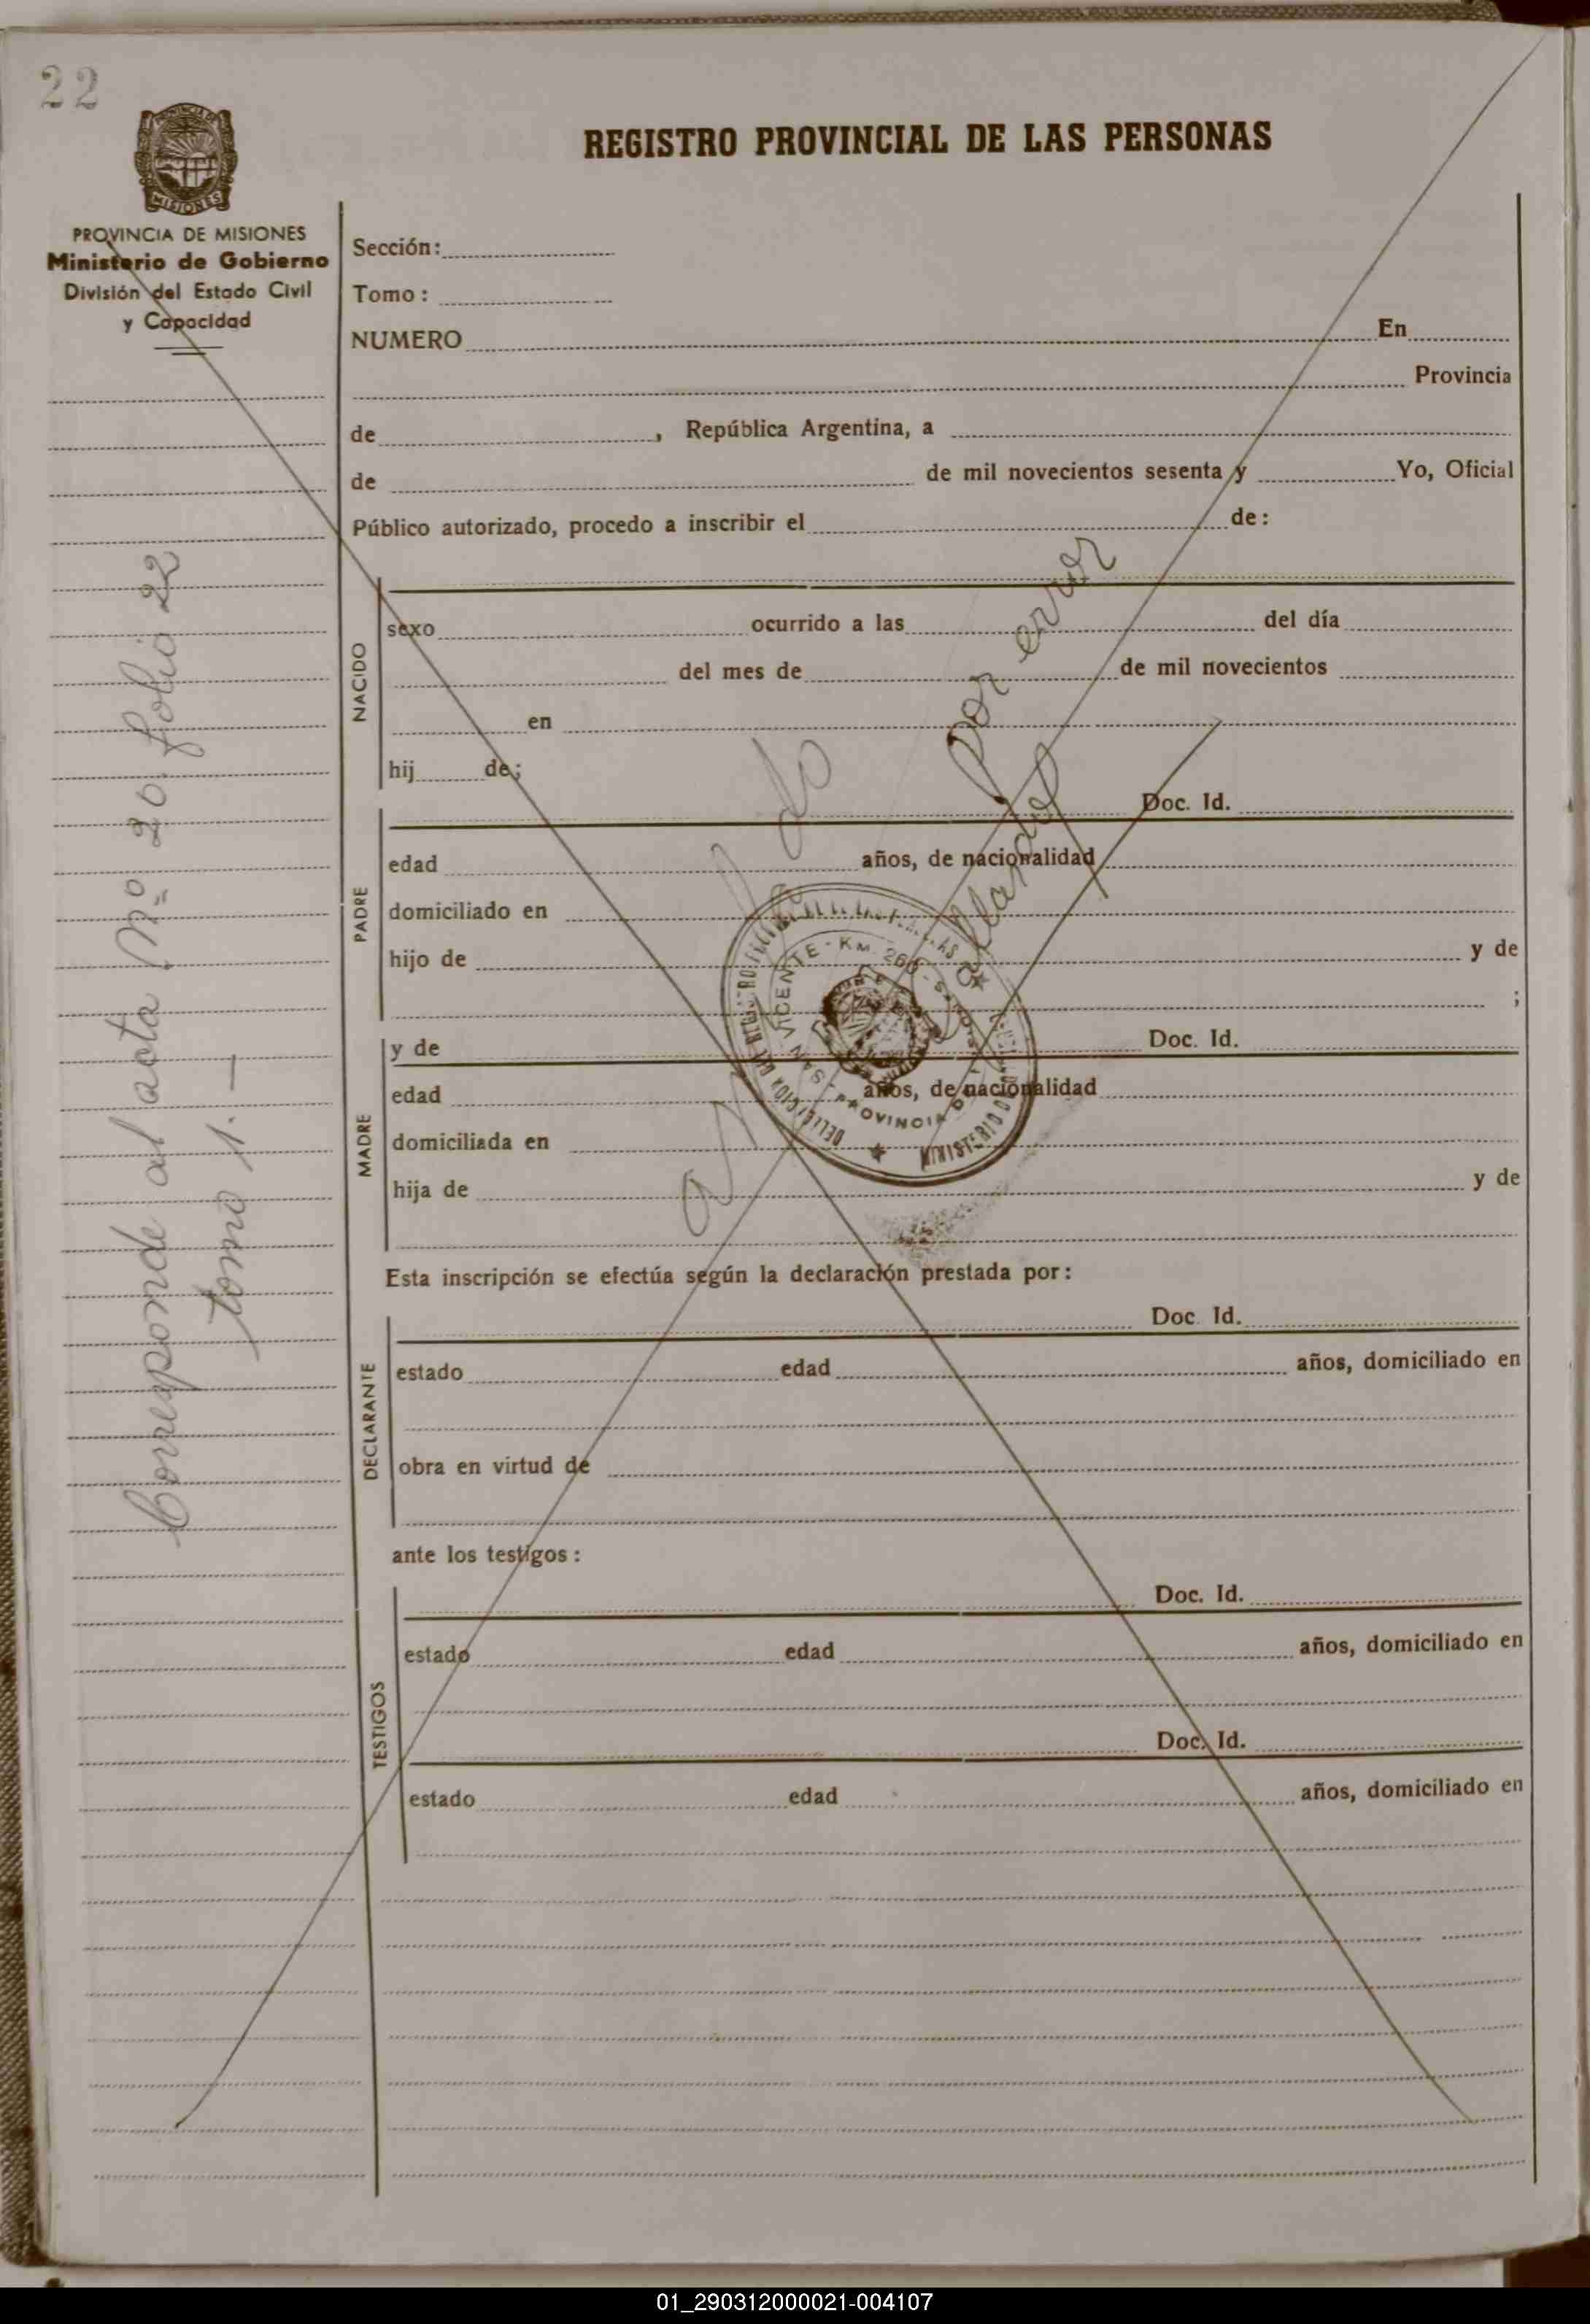 22
PROVINCIA DE
MISIONES
REGISTRO PROVINCIAL DE LAS PERSONAS
PROVINCIA DE MISIONES
Ministerio de Gobierno
División del Estado Civil
y Capacidad
Sección:
Tomo :
NUMERO En
Provincia
de , República Argentina, a
de de mil novecientos sesenta y Yo, Oficial
Público autorizado, procedo a inscribir el de:
NACIDO
sexo ocurrido a las del día
del mes de de mil novecientos
en
hij de;
PADRE
Doc. Id.
edad años, de nacionalidad
domiciliado en
hijo de y de
;
MADRE
y de Doc. Id.
edad años, de nacionalidad
domiciliada en
hija de y de
Esta inscripción se efectúa según la declaración prestada por:
DECLARANTE
Doc. Id.
estado edad años, domiciliado en
obra en virtud de
ante los testigos:
TESTIGOS
Doc. Id.
estado edad años, domiciliado en
Doc. Id.
estado edad años, domiciliado en
Corresponde al acta Nº 20. folio 22
tomo 1. —
Anulado
por error
SAN VICENTE - KM. 266
PROVINCIA
MINISTERIO
01_290312000021-004107